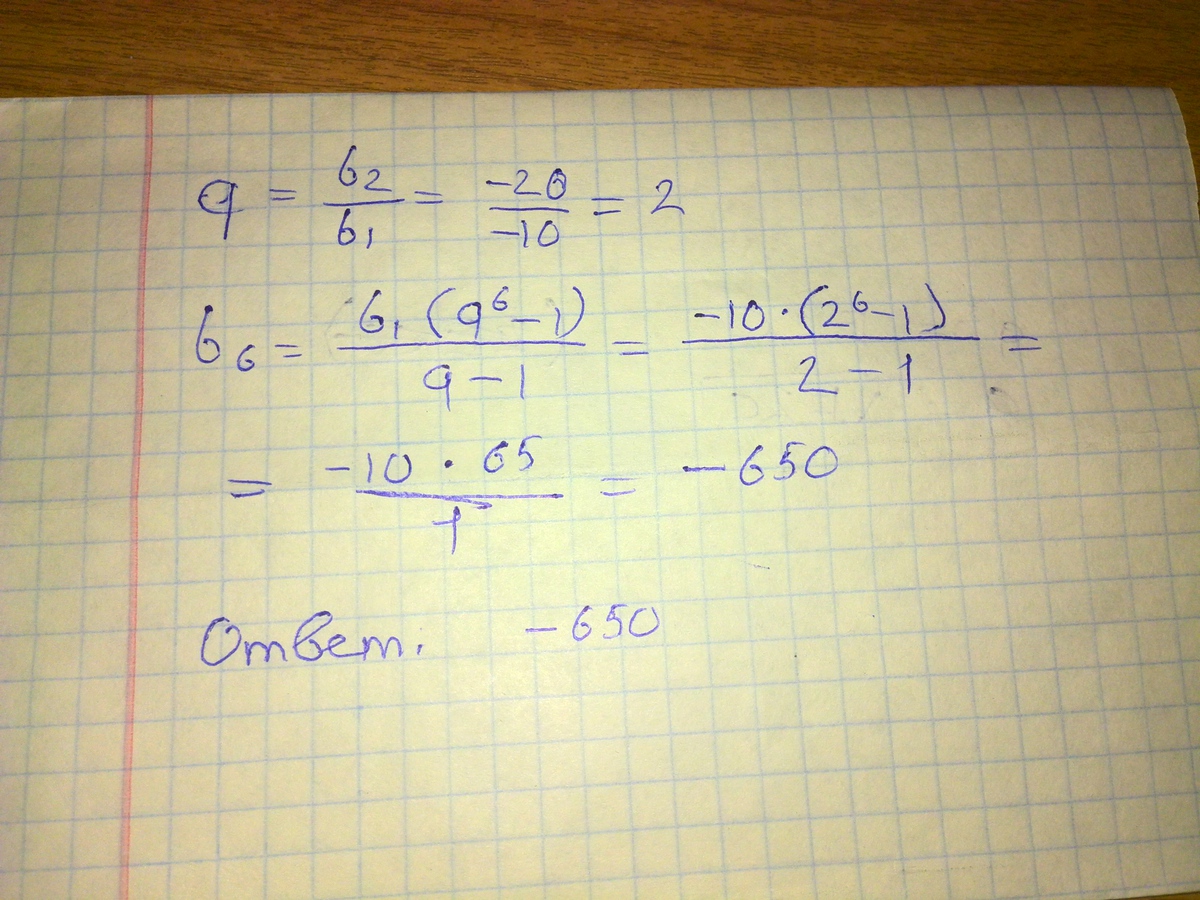 q = b₂/b₁ = -20/-10 = 2
b₆ = b₁(q⁶-1)/q-1 = -10·(2⁶-1)/2-1 =
= -10·65/1 = -650
Ответ. -650